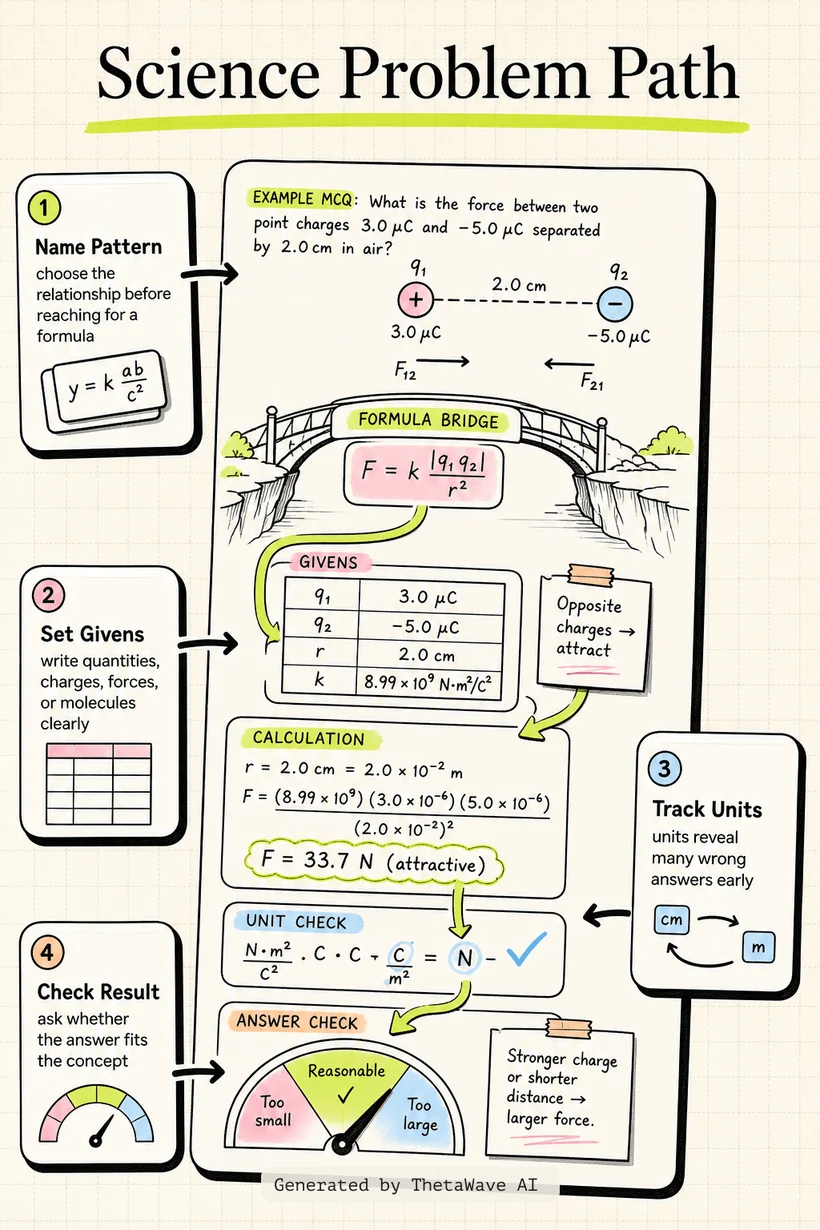 Science Problem Path
1
Name Pattern
choose the
relationship before
reaching for a
formula
y = k ab/c²
EXAMPLE MCQ: What is the force between two
point charges 3.0 μC and −5.0 μC separated
by 2.0 cm in air?
q₁
q₂
2.0 cm
+
−
3.0 μC
−5.0 μC
F₁₂
F₂₁
FORMULA BRIDGE
F = k |q₁ q₂|/r²
2
Set Givens
write quantities,
charges, forces,
or molecules
clearly
GIVENS
q₁ 3.0 μC
q₂ −5.0 μC
r 2.0 cm
k 8.99 × 10⁹ N·m²/C²
Opposite
charges →
attract
CALCULATION
r = 2.0 cm = 2.0 × 10⁻² m
F = (8.99 × 10⁹) (3.0 × 10⁻⁶) (5.0 × 10⁻⁶)
(2.0 × 10⁻²)²
F = 33.7 N (attractive)
3
Track Units
units reveal
many wrong
answers early
cm
m
UNIT CHECK
N·m²/C² · C · C ÷ C/m² = N – ✓
4
Check Result
ask whether
the answer fits
the concept
ANSWER CHECK
Too
small
Reasonable
✓
Too
large
Stronger charge
or shorter
distance →
larger force.
Generated by ThetaWave AI